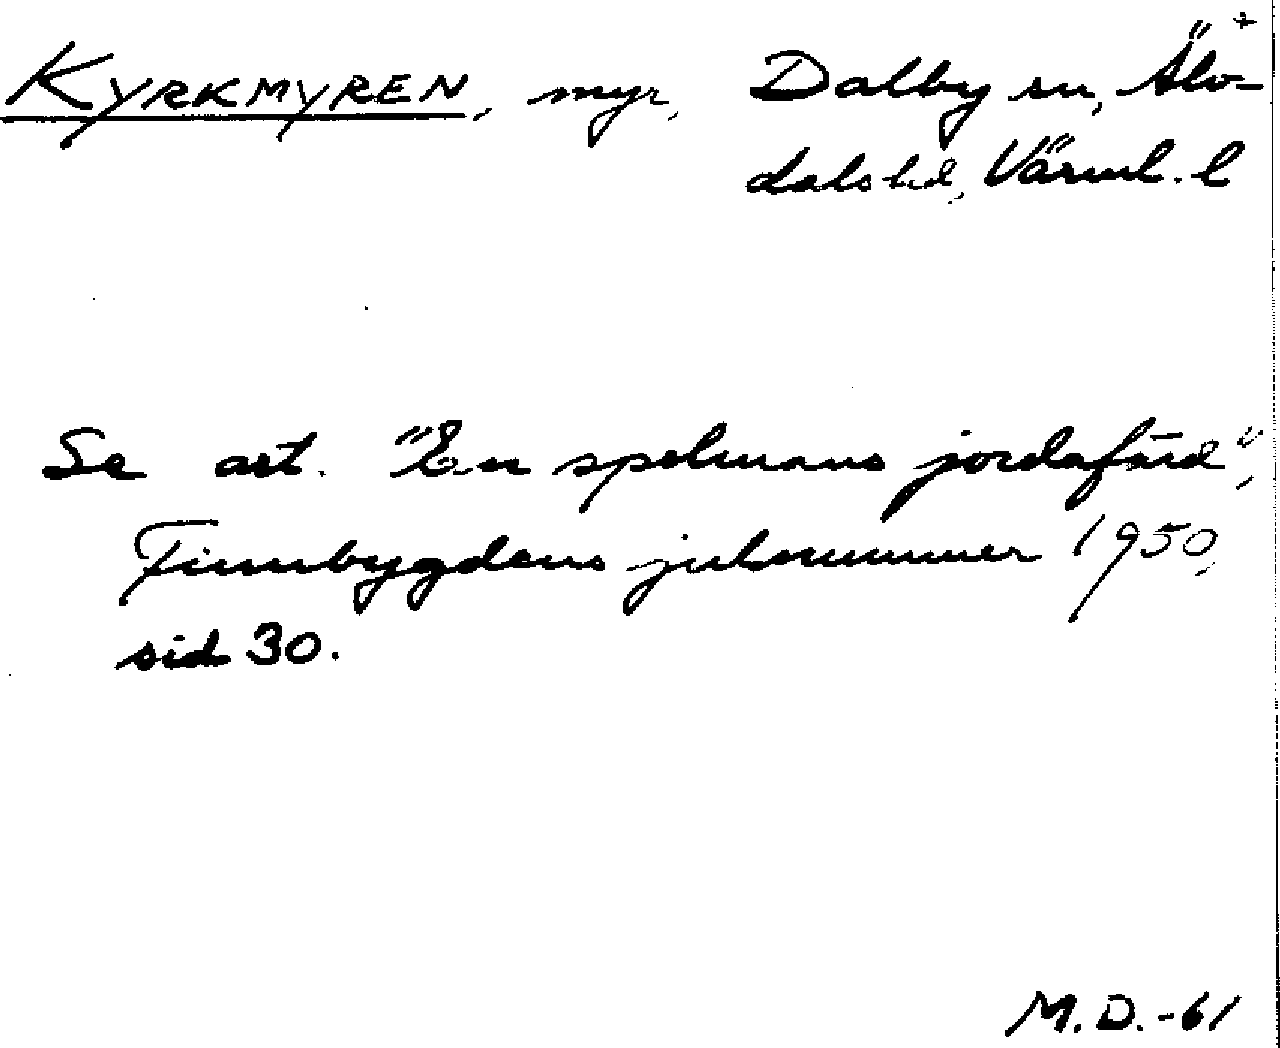 KYRKMYREN, myr, Dalby sn, Älv-
dals hd, Värml. l
Se art. "En spelmans jordafärd",
Finnbygdens julnummer 1950,
sid 30.
M.D.-61